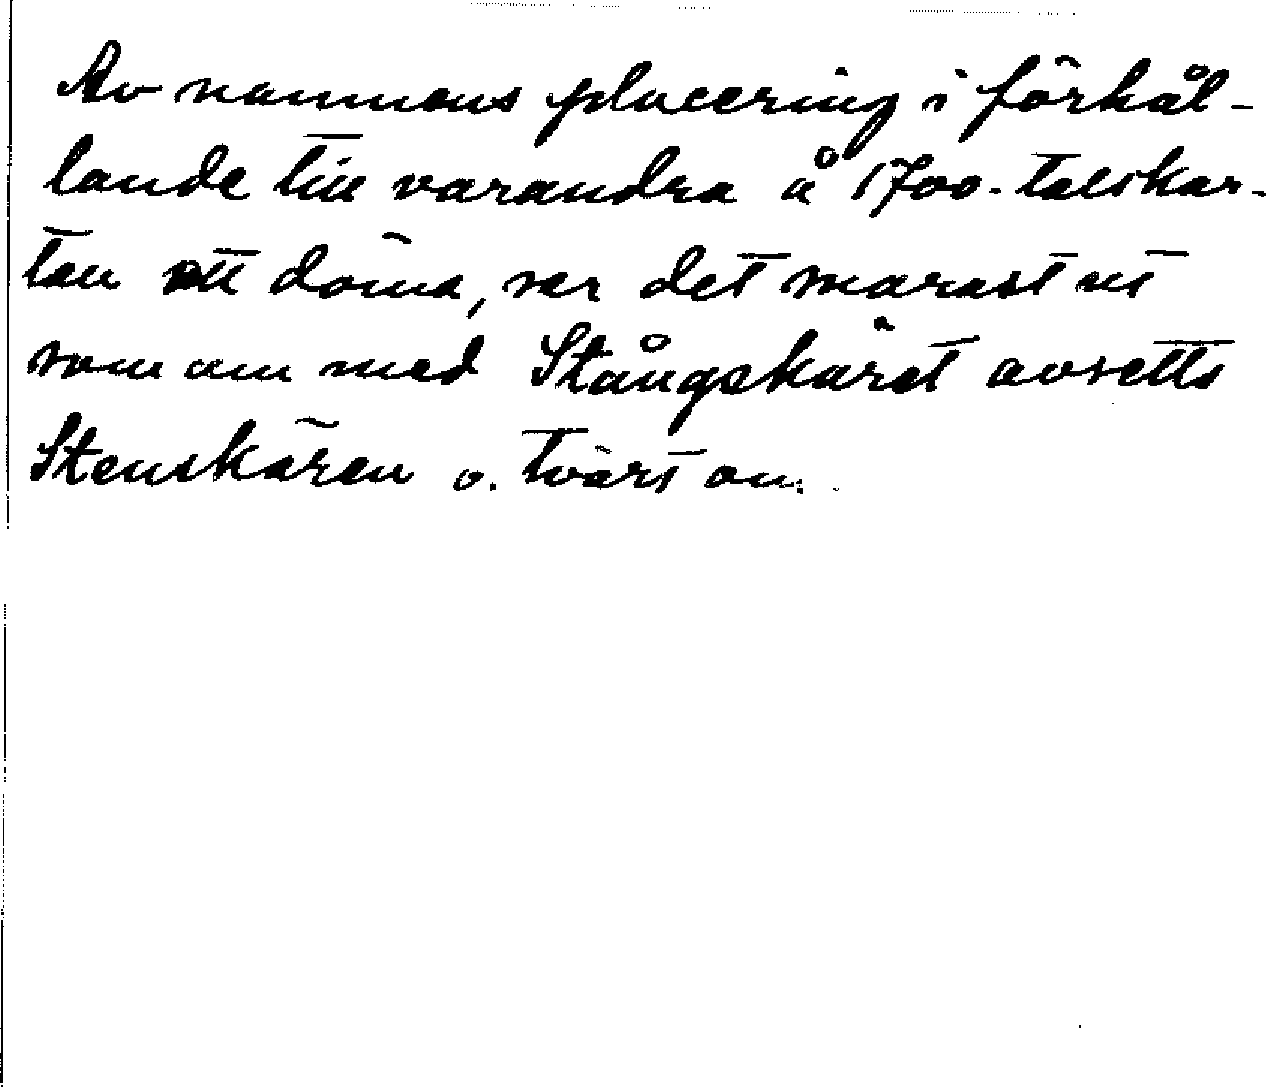 Av namnens placering i förhål-
lande till varandra å 1700-talskar-
tan att döma, ser det snarast ut
som om med Stångskäret avsetts
Stenskären o. tvärt om.